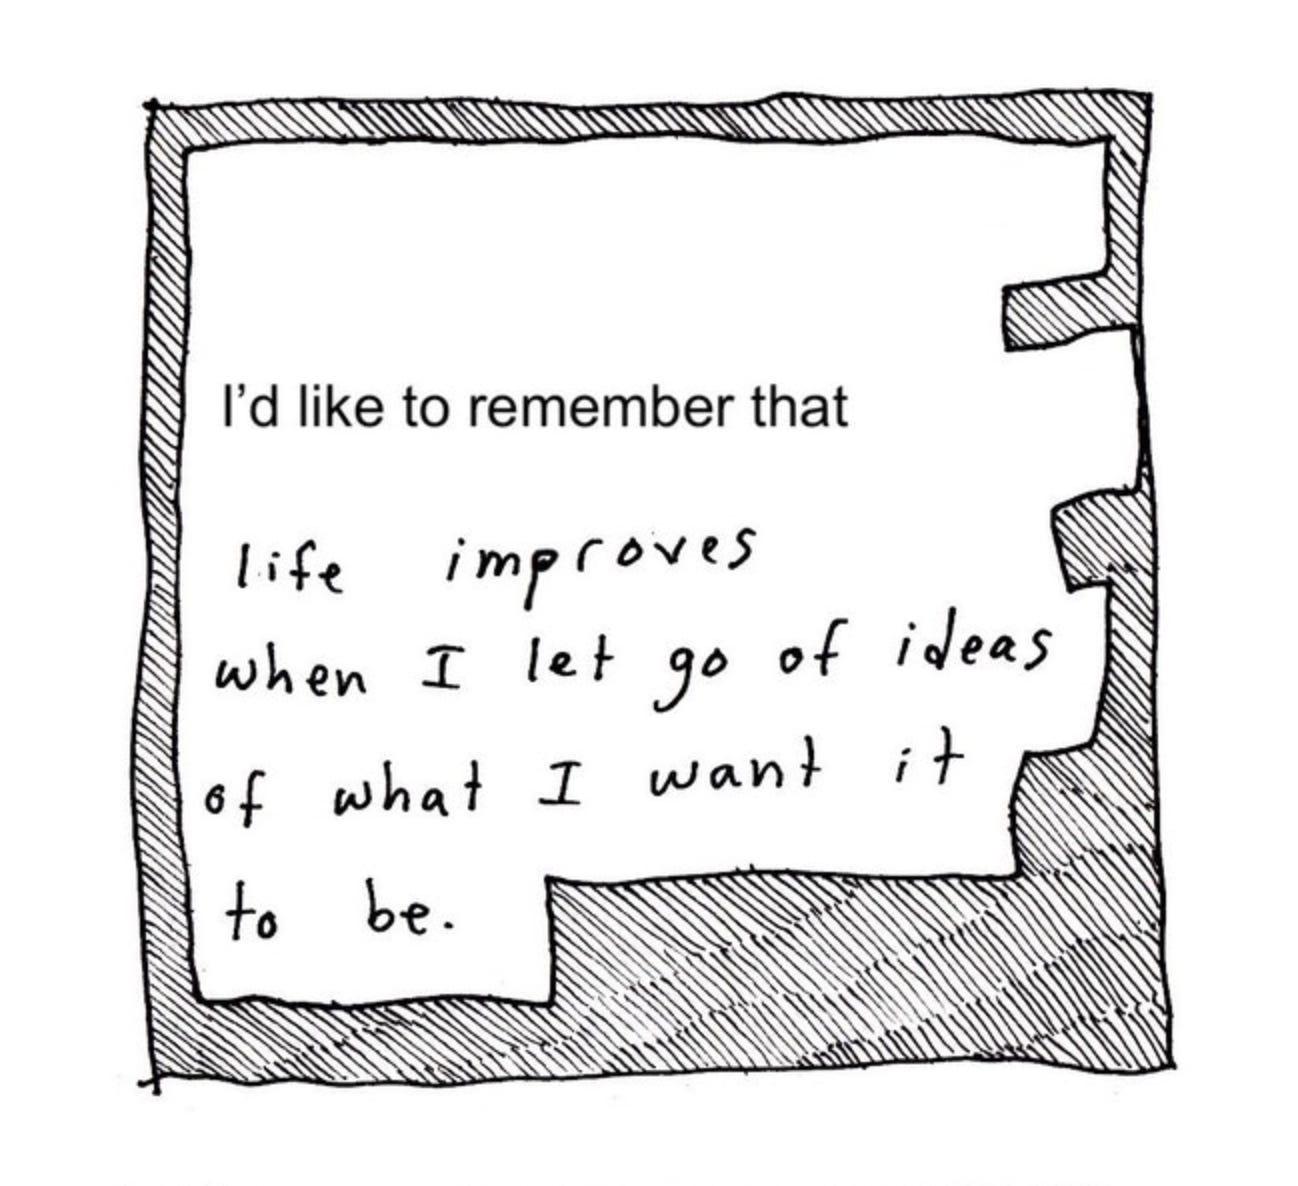 I’d like to remember that
life improves
when I let go of ideas
of what I want it
to be.